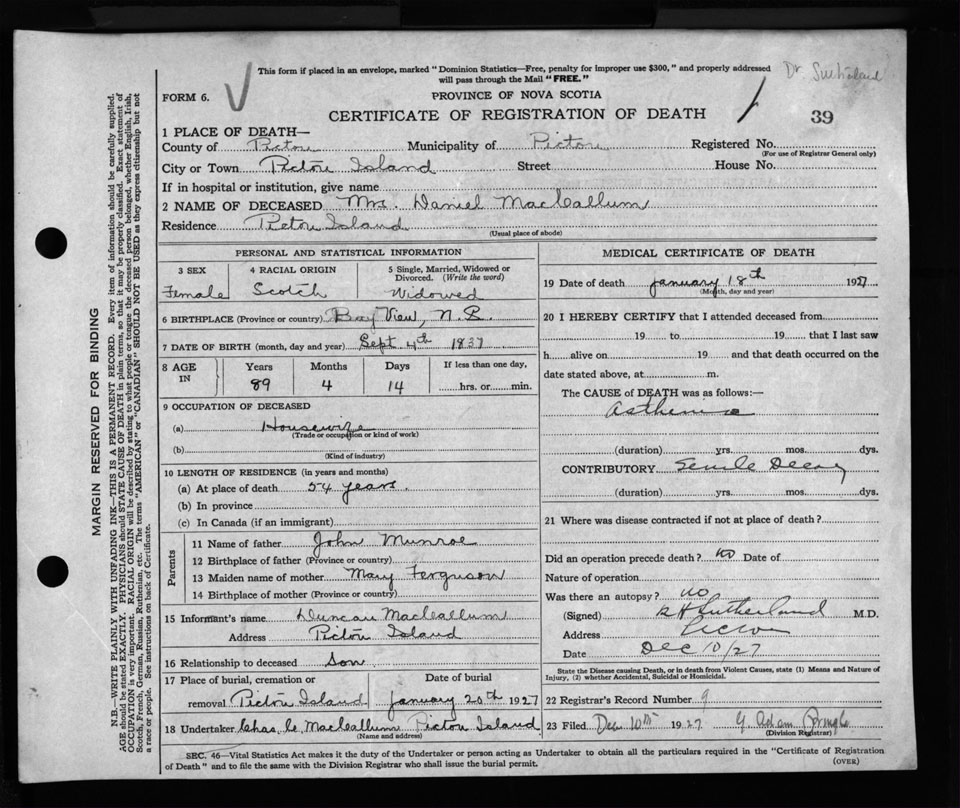 This form if placed in an envelope, marked "Dominion Statistics—Free, penalty for improper use $300," and properly addressed
will pass through the Mail "FREE."
Dr. Sutherland
FORM 6.
PROVINCE OF NOVA SCOTIA
CERTIFICATE OF REGISTRATION OF DEATH
39
1 PLACE OF DEATH—
County of Pictou Municipality of Pictou Registered No.
(For use of Registrar General only)
City or Town Pictou Island Street House No.
If in hospital or institution, give name
2 NAME OF DECEASED Mrs. Daniel MacCallum
Residence Pictou Island
(Usual place of abode)
PERSONAL AND STATISTICAL INFORMATION
3 SEX
Female
4 RACIAL ORIGIN
Scotch
5 Single, Married, Widowed or
Divorced. (Write the word)
Widowed
6 BIRTHPLACE (Province or country) Bay View, N.S.
7 DATE OF BIRTH (month, day and year) Sept 4th 1837
8 AGE
IN
Years Months Days If less than one day,
89 4 14 hrs. or min.
9 OCCUPATION OF DECEASED
(a) Housewife
(Trade or occupation or kind of work)
(b)
(Kind of industry)
10 LENGTH OF RESIDENCE (in years and months)
(a) At place of death 54 years.
(b) In province
(c) In Canada (if an immigrant)
Parents
11 Name of father John Munroe
12 Birthplace of father (Province or country)
13 Maiden name of mother Mary Ferguson
14 Birthplace of mother (Province or country)
15 Informant's name Duncan MacCallum
Address Pictou Island
16 Relationship to deceased Son
17 Place of burial, cremation or Date of burial
removal Pictou Island January 20th 1927
18 Undertaker Chas. C. MacCallum Pictou Island
(Name and address)
MEDICAL CERTIFICATE OF DEATH
19 Date of death January 18th 1927
(Month, day and year)
20 I HEREBY CERTIFY that I attended deceased from
19 to 19 that I last saw
h alive on 19 and that death occurred on the
date stated above, at m.
The CAUSE of DEATH was as follows:—
Asthenia
(duration) yrs. mos. dys.
CONTRIBUTORY Senile Decay
(duration) yrs. mos. dys.
21 Where was disease contracted if not at place of death?
Did an operation precede death? no Date of
Nature of operation
Was there an autopsy? no
(Signed) Sutherland M.D.
Address Pictou
Date Dec 10/27
State the Disease causing Death, or in death from Violent Causes, state (1) Means and Nature of
Injury, (2) whether Accidental, Suicidal or Homicidal.
22 Registrar's Record Number 9
23 Filed Dec 10th 1927 G Adam Pringle
(Division Registrar)
SEC. 46—Vital Statistics Act makes it the duty of the Undertaker or person acting as Undertaker to obtain all the particulars required in the "Certificate of Registration
of Death" and to file the same with the Division Registrar who shall issue the burial permit.
(OVER)
MARGIN RESERVED FOR BINDING
N.B.—WRITE PLAINLY WITH UNFADING INK—THIS IS A PERMANENT RECORD. Every item of information should be carefully supplied.
AGE should be stated EXACTLY. PHYSICIANS should STATE CAUSE OF DEATH in plain terms, so that it may be properly classified. Exact statement of
OCCUPATION is very important. RACIAL ORIGIN will be described by stating to what people or tongue the deceased person belonged, whether English, Irish,
Scotch, French, German, Russian, Ruthenian, etc. The terms "AMERICAN" or "CANADIAN" SHOULD NOT BE USED as they express citizenship but not
a race or people. See instructions on back of Certificate.